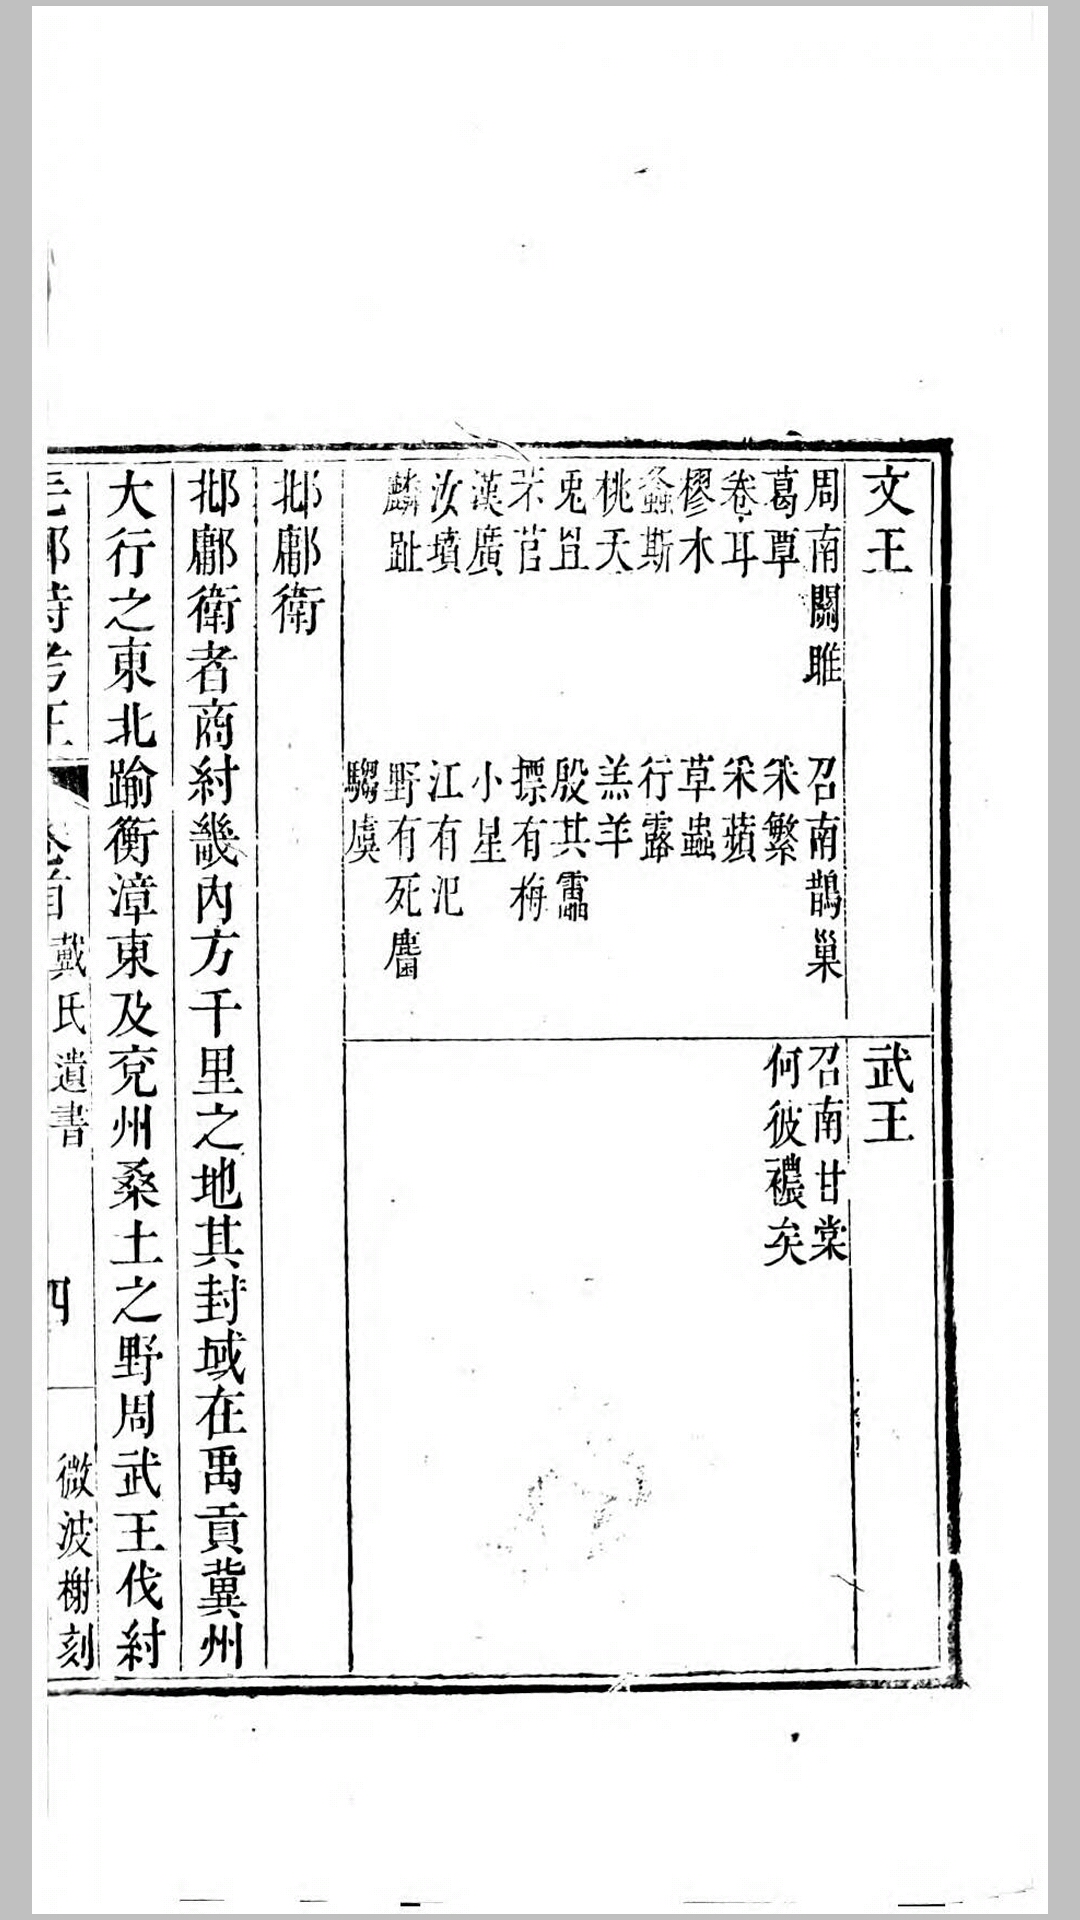 文王
周南關雎
葛覃
卷耳
樛木
螽斯
桃夭
兎罝
芣苢
漢廣
汝墳
麟趾
召南鵲巢
采繁
采蘋
草蟲
行露
羔羊
殷其靁
摽有梅
小星
江有汜
野有死麕
騶虞
武王
召南甘棠
何彼襛矣
邶鄘衛
邶鄘衛者商紂畿內方千里之地其封域在禹貢冀州
大行之東北踰衡漳東及兖州桑土之野周武王伐紂
毛鄭詩考正 卷首 戴氏遺書 四 微波榭刻